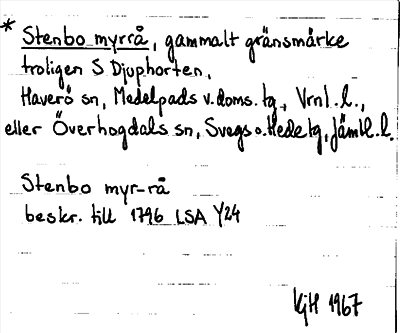 * Stenbo myrrå, gammalt gränsmärke
troligen S Djuphorten,
Haverö sn, Medelpads v. doms. tg, Vrnl. l.,
eller Överhogdals sn, Svegs o. Hede tg, Jämtl. l.
Stenbo myr-rå
beskr. till 1796 LSA Y24
KjH 1967